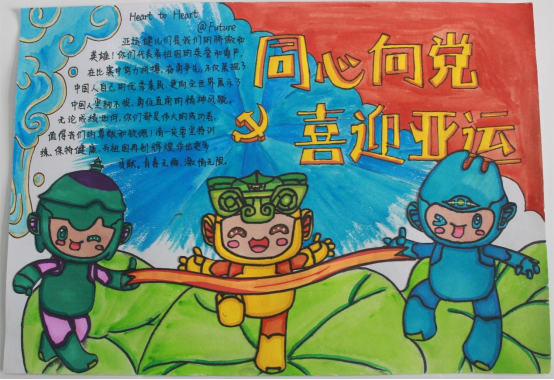 Heart to Heart,
@Future
亚运健儿们是我们的骄傲和
英雄!你们代表着祖国的荣誉和尊严,
在比赛中努力拼搏,奋勇争先,不仅展现了
中国人自己的优秀素质,更向全世界展示了
中国人坚韧不拔、勇往直前的精神风貌。
无论成绩如何,你们都是伟大的成功者,
值得我们的尊敬和钦佩!
练,保持健康,为祖国再创辉煌作出更多
贡献,青春无悔,激情无限。
同心向党
喜迎亚运